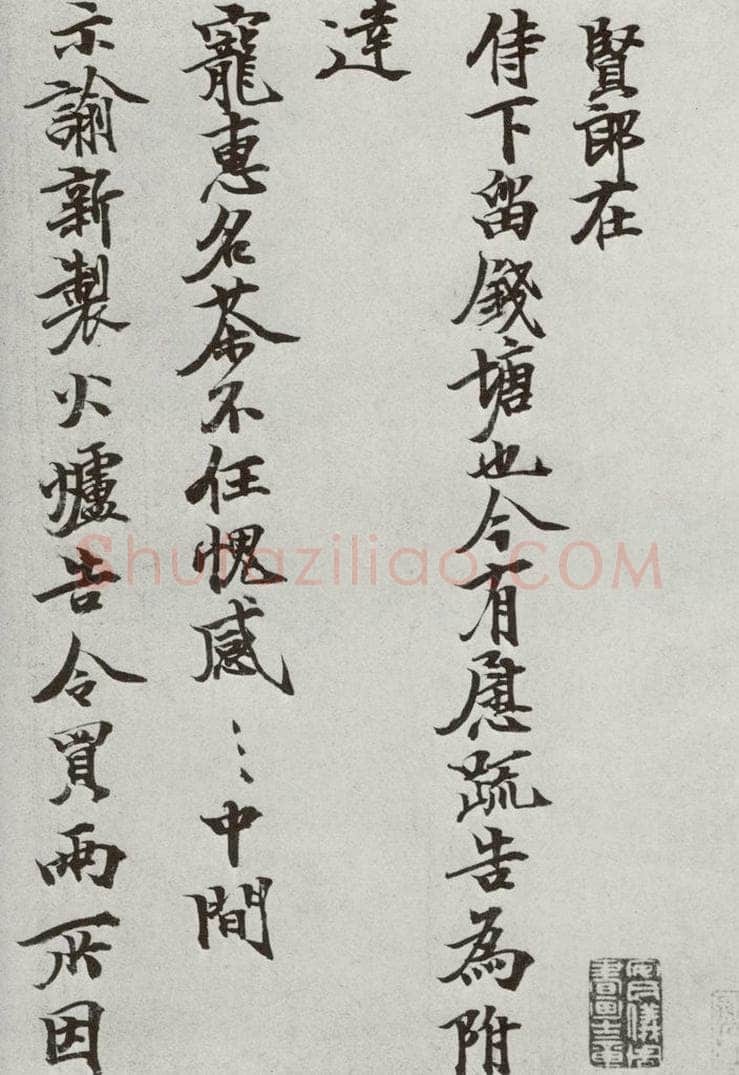 賢郎在
侍下留錢塘也今有慰疏告為附
達
寵惠名茶不任愧感〻中間
示諭新製火爐告令買兩所因
Shufaziliao.COM